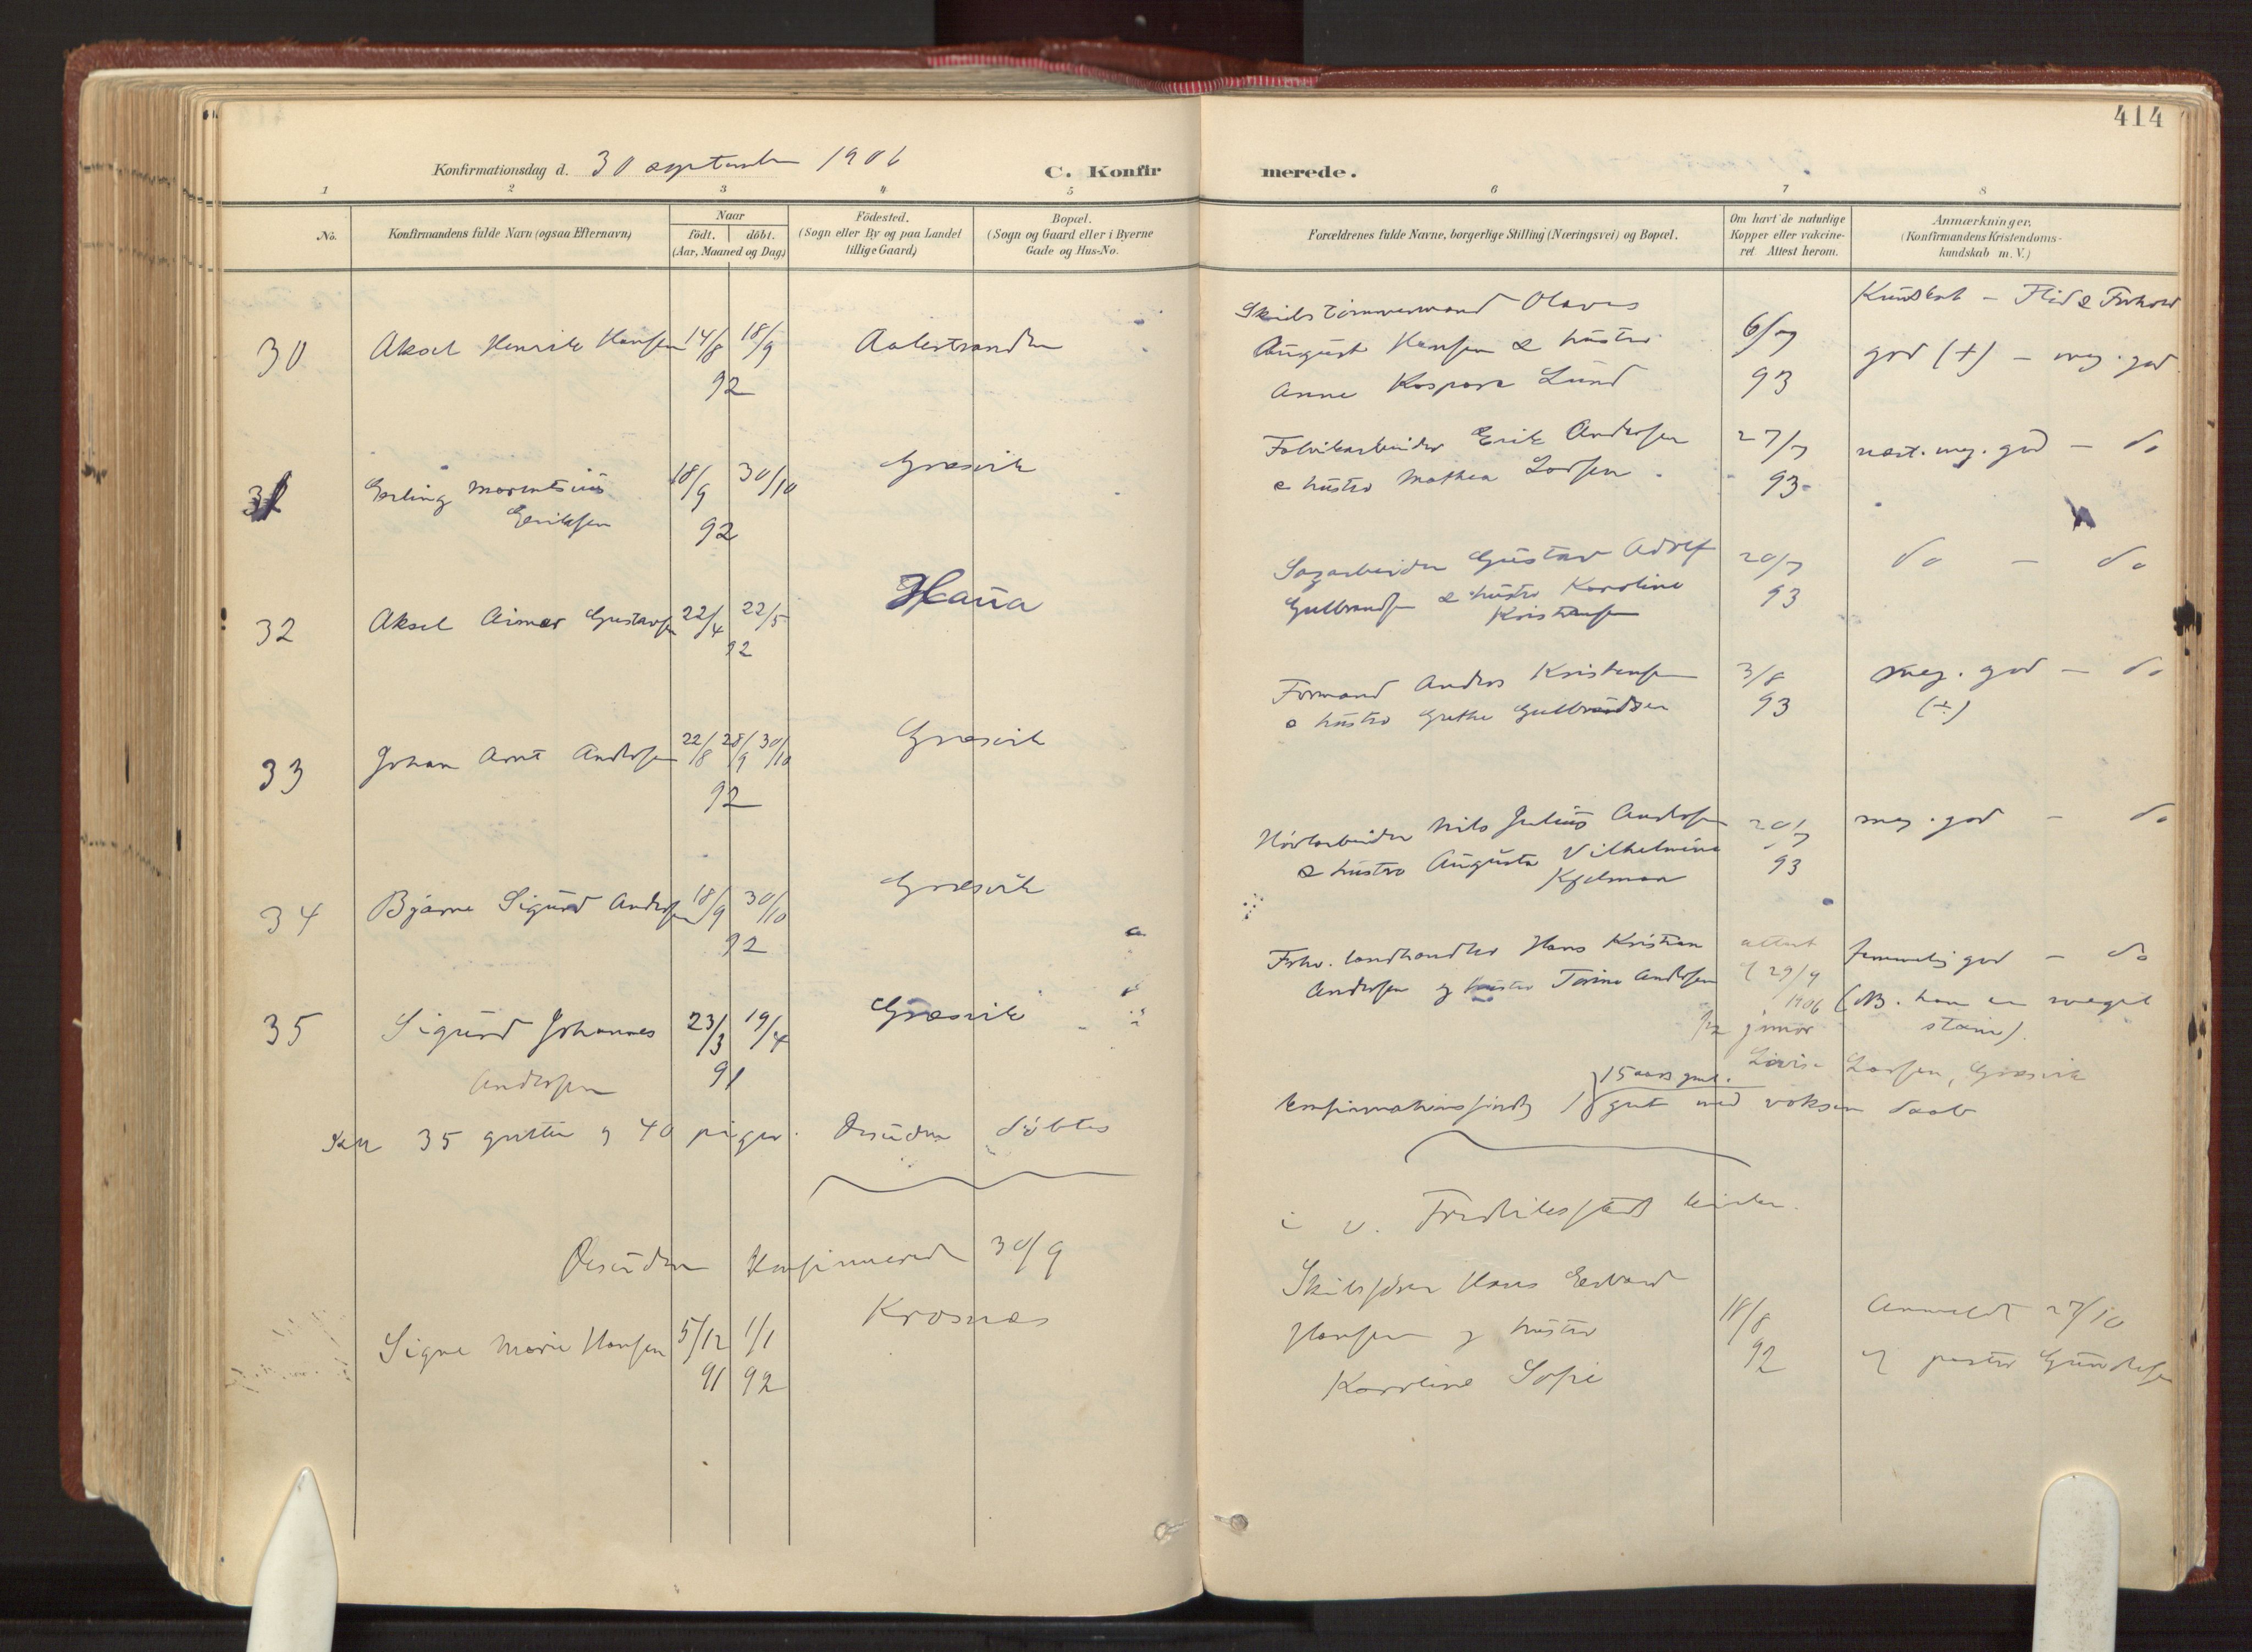 414
Konfirmationsdag d. 30 september 1906
C. Konfirmerede.
1 2 3 4 5 6 7 8
No.
Konfirmandens fulde Navn (ogsaa Efternavn)
Naar
födt. döbt.
(Aar, Maaned og Dag)
Födested.
(Sogn eller By og paa Landet
tillige Gaard)
Bopæl.
(Sogn og Gaard eller i Byerne
Gade og Hus-No.
Forældrenes fulde Navne, borgerlige Stilling (Næringsvei) og Bopæl.
Om havt de naturlige
Kopper eller vakcine-
ret Attest herom.
Anmærkninger.
(Konfirmandens Kristendoms-
kundskab m. V.)
Kundskab – Flid & Forhold
30 Aksel Henrik Hansen 14/8 18/9 Aalestranden
92
Skibstömmermand Olaves
August Hansen & hustru
Anne Kaspara Lund
6/7
93
god (+) – meg. god
31 Erling Marentius 18/9 30/10 Græsvik
Eriksen 92
Fabrikarbeider Erik Andersen
& hustru Mathea Larsen
27/7
93
næst. meg. god – do
32 Aksel Aimar Gustavsen 22/4 22/5 Haua
92
Sagarbeider Gustav Adolf
Gulbrandsen & hustru Karoline
Kristensen
20/7
93
do – do
33 Johan Arnt Andersen 22/8 28/9 30/10 Græsvik
92
Formand Anders Kristensen
& hustru Grethe Gulbrandsen
3/8
93
meg. god – do
(÷)
34 Bjarne Sigurd Andersen 18/9 30/10 Græsvik
92
Hövlarbeider Nils Julius Andersen
& hustru Augusta Vilhelmine
Kjelman
20/7
93
meg. god – do
35 Sigurd Johannes 23/3 19/4 Græsvik
Andersen 91
Forhv. landhandler Hans Kristian
Andersen og hustru Torine Andersen
attest
29/9
1906
junior
temmelig god – do
(NB. han er meget
stam).
35 gutter og 40 piger. Desuden döbtes
15 aars gml. Lovise Larsen, Græsvik
1 gut med voksen daab
Desuden Konfirmered 30/9
i v. Fredrikstads kirke.
Signe Marie Hansen 5/12 1/1 Krosnes
91 92
Skibsförer Hans Edvard
Hansen og hustru
Karoline Sofie
18/8
92
Anmeldt 27/10
af pastor Gundersen